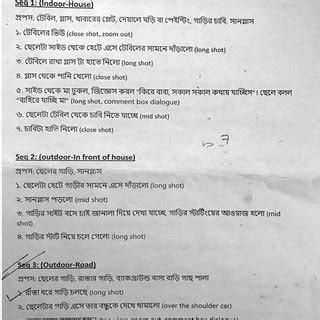 Seq 1: (Indoor-House)
প্রপস: টেবিল, গ্লাস, খাবারের প্লেট, দেয়ালে ঘড়ি বা পেইন্টিং, গাড়ির চাবি, সানগ্লাস
১. টেবিলের ভিউ (close shot, zoom out)
২. ছেলেটা সাইড থেকে হেটে এসে টেবিলের সামনে দাঁড়ালো (long shot)
৩. টেবিলে রাখা গ্লাস টা হাতে নিলো (long shot)
৪. গ্লাস থেকে পানি খেলো (close shot)
৫. সাইড থেকে মা ঢুকল, জিজ্ঞেস করল "কিরে বাবা, সকাল সকাল কথায় যাচ্ছিস"। ছেলে বলল
"বাহিরে যাচ্ছি মা" (long shot, comment box dialogue)
৬. ছেলেটা টেবিল থেকে চাবি নিতে যাচ্ছে (mid shot)
৭. চাবিটা হাতে নিলো (close shot)
Seq 2: (outdoor-In front of house)
প্রপস: ছেলের গাড়ি, সানগ্লাস
১. ছেলেটা হেটে গাড়ীর সামনে এসে দাঁড়ালো (long shot)
২. সানগ্লাস পড়লো (mid shot)
৩. গাড়ির সাইট বসে চাই জানালা দিয়ে দেখা যাচ্ছে, গাড়ির স্টার্টিংয়ের আওয়াজ হলো (mid shot)
৪. গাড়ির স্টার্ট নিয়ে চলে গেলো (long shot)
Seq 3: (Outdoor-Road)
প্রপস: ছেলের গাড়ি, রাস্তার গাড়ি, ব্যাকগ্রাউন্ড বাসা বাড়ি গাছ পালা
১. রাস্তা ধরে গাড়ি চলছে (long shot)
২. ছেলেটার গাড়ি এসে তার বন্ধুকে দেখে থামালো (over the shoulder car)